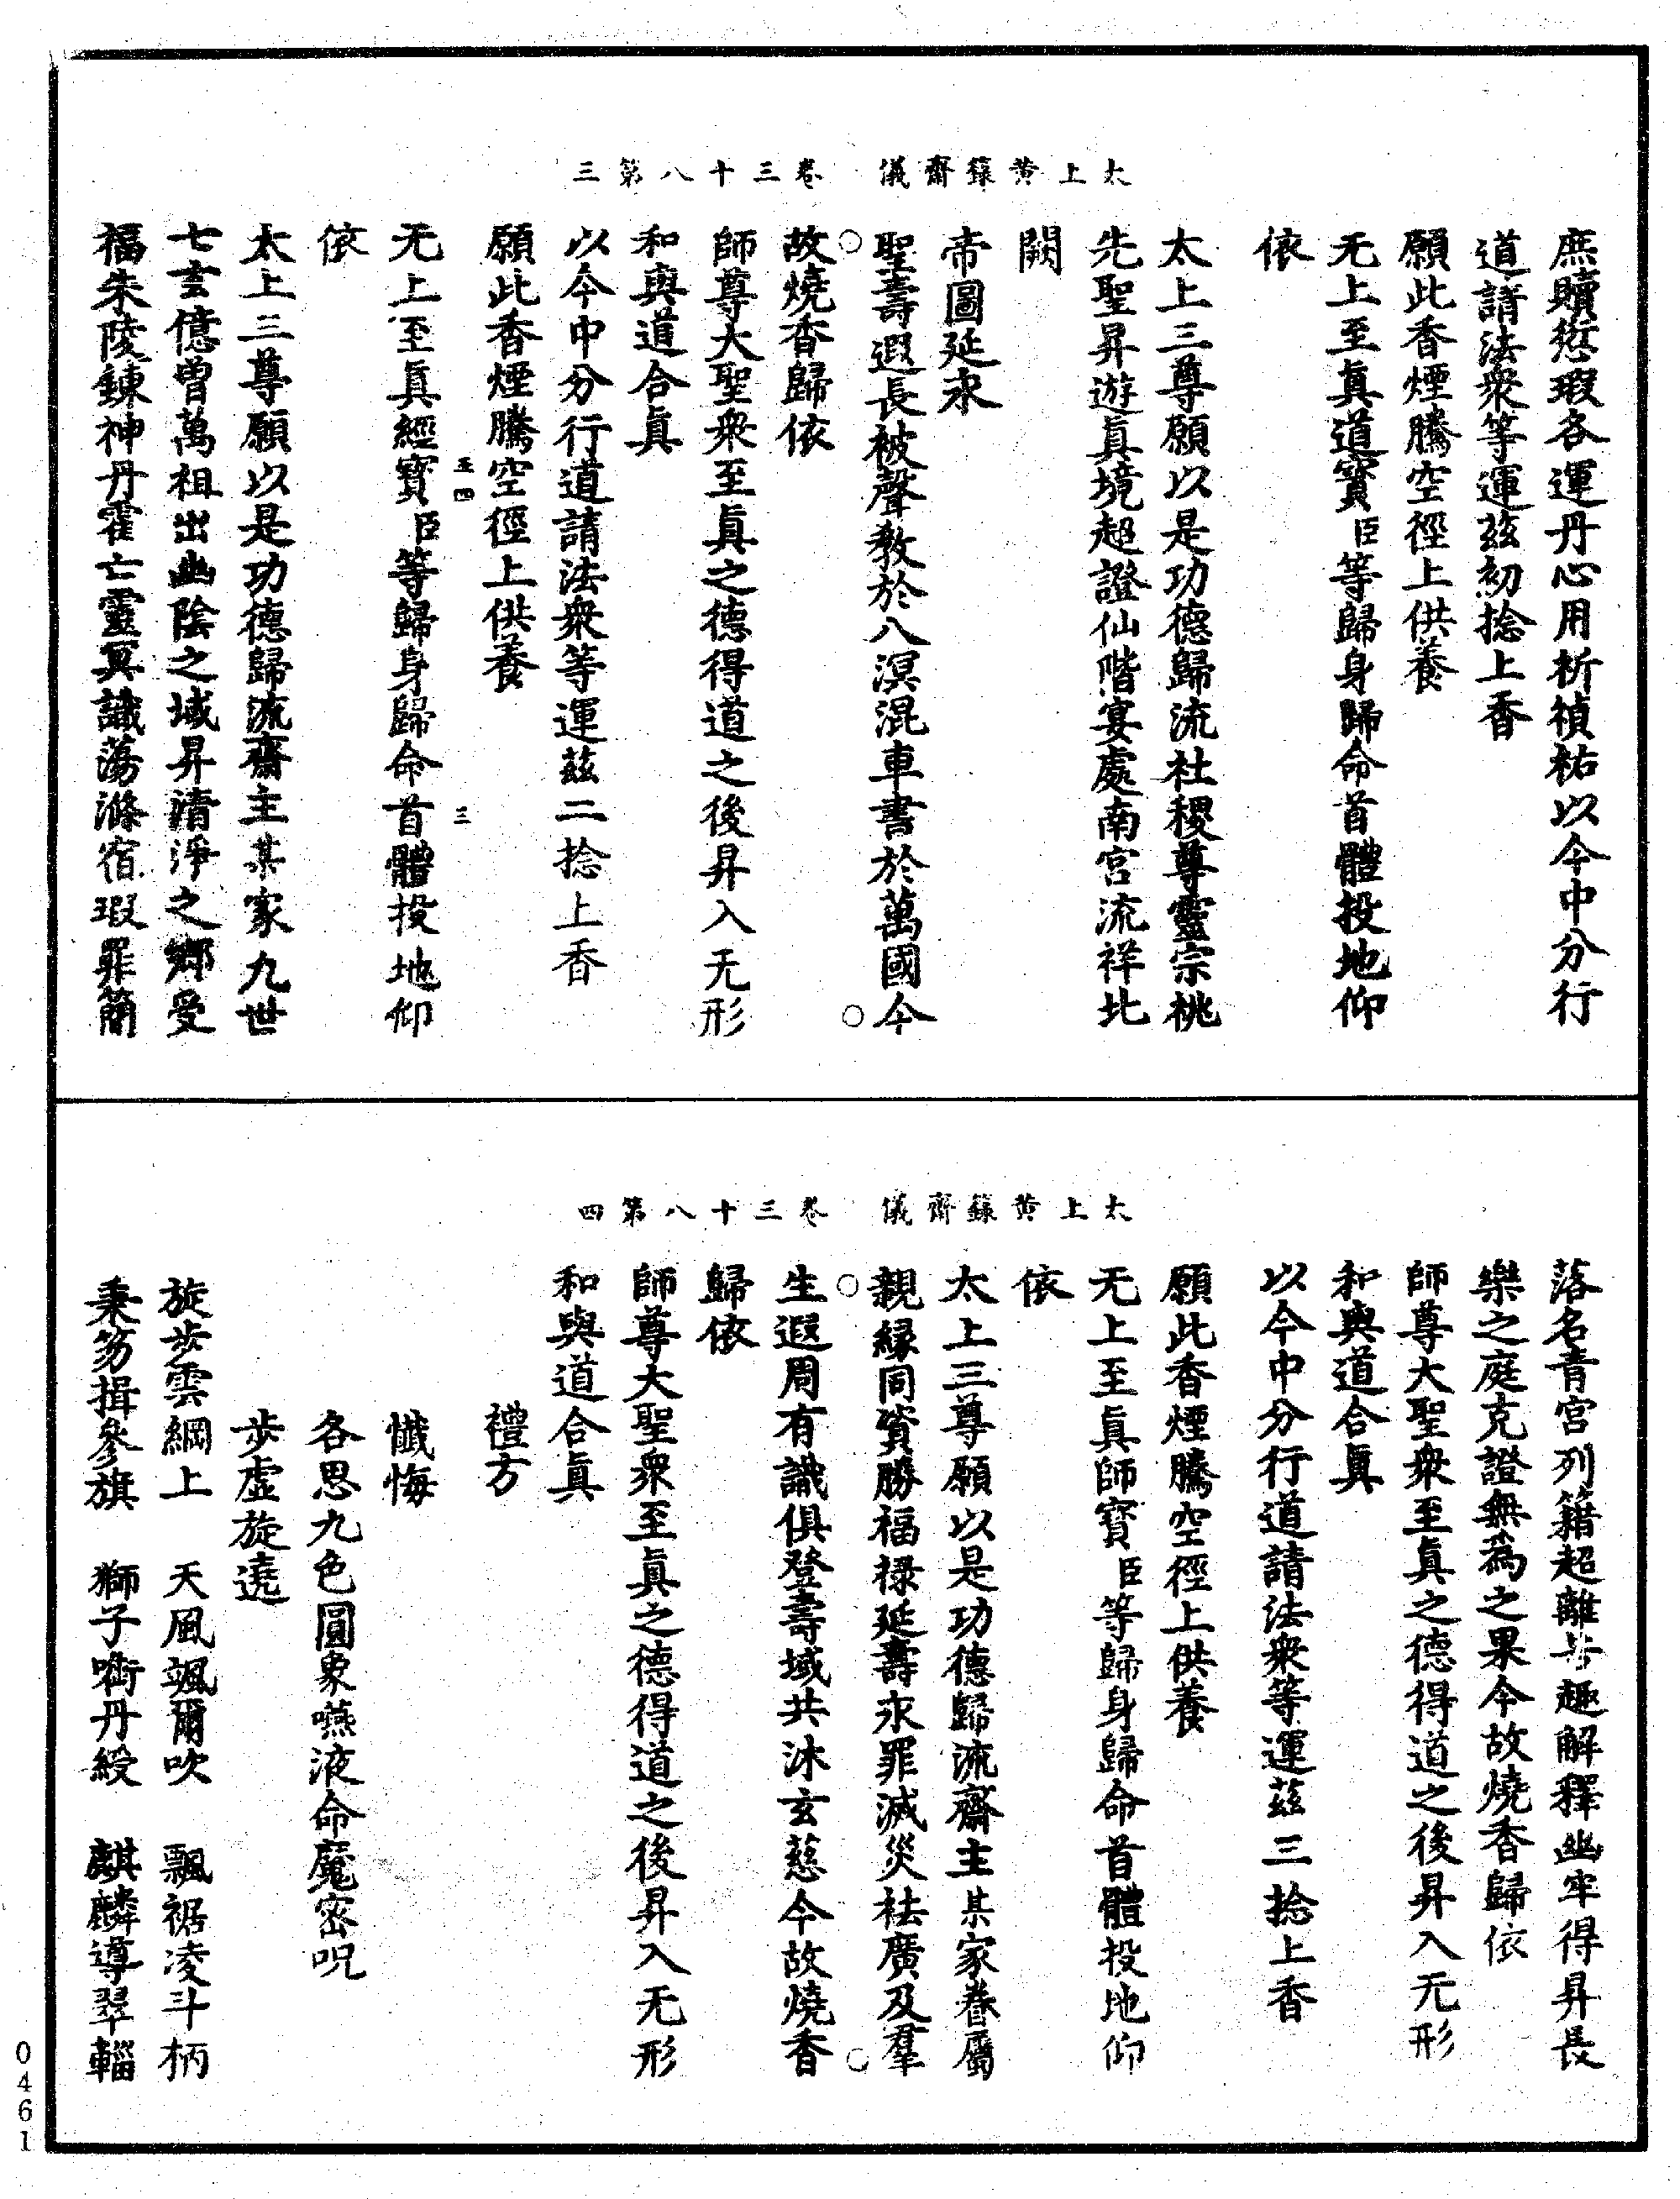 太上黃籙齋儀　卷三十八第三
庶贖愆瑕各運丹心用祈禎祐以今中分行
道請法衆等運茲初捻上香
願此香煙騰空徑上供養
无上至眞道寳臣等歸身歸命首體投地仰
依
太上三尊願以是功德歸流社稷尊靈宗祧
先聖昇遊眞境超證仙階宴處南宮流祥北
闕
帝圖延永
聖壽遐長被聲敎於八溟混車書於萬國今
故燒香歸依
師尊大聖衆至眞之德得道之後昇入无形
和與道合眞
以今中分行道請法衆等運茲二捻上香
願此香煙騰空徑上供養
无上至眞經寳臣等歸身歸命首體投地仰
依
太上三尊願以是功德歸流齋主某家九世
七玄億曾萬祖出幽陰之域昇清淨之鄉受
福朱陵鍊神丹霍亡靈冥識蕩滌宿瑕罪簡
太上黃籙齋儀　卷三十八第四
落名青宮列籍超離苦趣解釋幽牢得昇長
樂之庭克證無爲之果今故燒香歸依
師尊大聖衆至眞之德得道之後昇入无形
和與道合眞
以今中分行道請法衆等運茲三捻上香
願此香煙騰空徑上供養
无上至眞師寳臣等歸身歸命首體投地仰
依
太上三尊願以是功德歸流齋主某家眷屬
親緣同資勝福祿延壽永罪滅災祛廣及羣
生遐周有識俱登壽域共沐玄慈今故燒香
歸依
師尊大聖衆至眞之德得道之後昇入无形
和與道合眞
禮方
懺悔
各思九色圓象嚥液命魔密呪
步虛旋遶
旋步雲綱上　天風颯爾吹　飄裾凌斗柄
秉笏揖參旗　獅子啣丹綬　麒麟導翠輜
0461